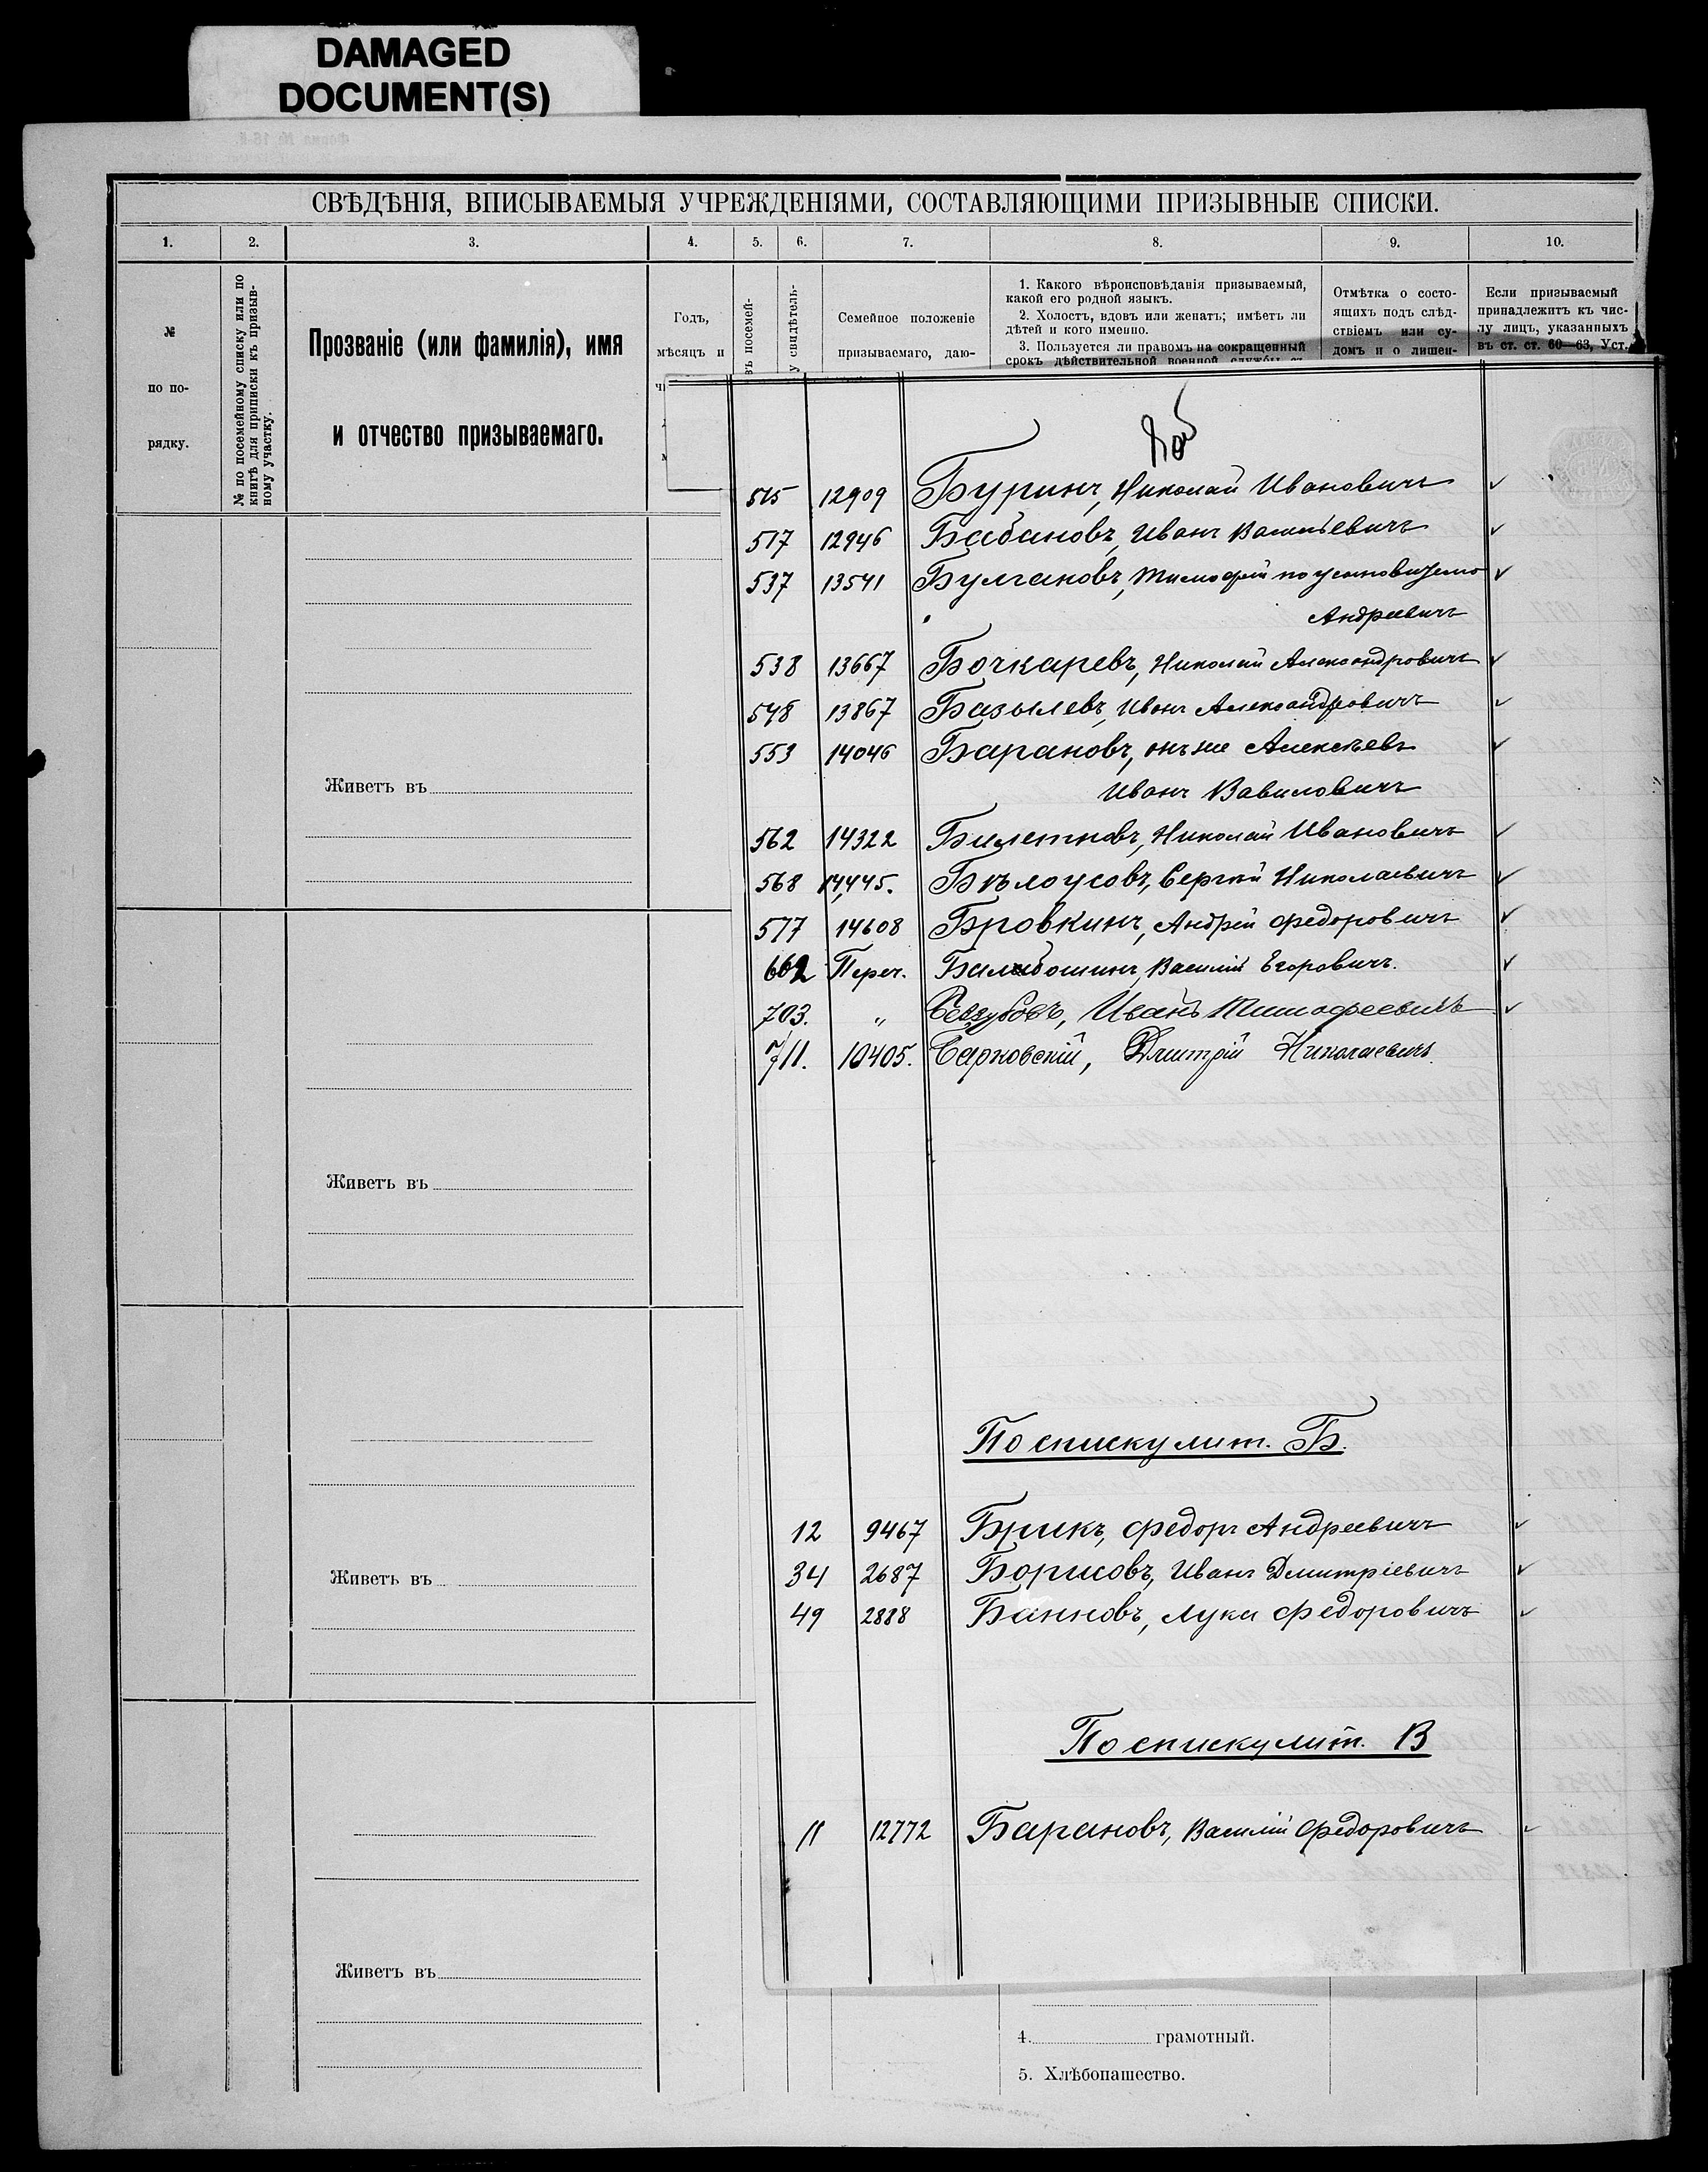 DAMAGED
DOCUMENT(S)
СВѢДѢНІЯ, ВПИСЫВАЕМЫЯ УЧРЕЖДЕНІЯМИ, СОСТАВЛЯЮЩИМИ ПРИЗЫВНЫЕ СПИСКИ.
1. 2. 3. 4. 5. 6. 7. 8. 9. 10.
№
по по-
рядку.
№ по посемейному списку или по
книгѣ для приписки къ призыв-
ному участку.
Прозваніе (или фамилія), имя
и отчество призываемаго.
Годъ,
мѣсяцъ и
въ посемей-
у свидѣтель-
Семейное положеніе
призываемаго, даю-
1. Какого вѣроисповѣданія призываемый,
какой его родной языкъ.
2. Холостъ, вдовъ или женатъ; имѣетъ ли
дѣтей и кого именно.
3. Пользуется ли правомъ на сокращенный
срокъ дѣйствительной военной службы
Отмѣтка о состо-
ящихъ подъ слѣд-
ствіемъ или су-
домъ и о лишен-
Если призываемый
принадлежитъ къ чис-
лу лицъ, указанныхъ
въ ст. ст. 60—63, Уст.
515 12909 Буринъ, Николай Ивановичъ
517 12946 Бабановъ, Иванъ Васильевичъ
537 13541 Булгаковъ, Тимофей по усыновителю
Андреевичъ
538 13667 Бочкаревъ, Николай Александровичъ
548 13867 Базылевъ, Иванъ Александровичъ
553 14046 Барановъ, онъ же Алексѣевъ
Иванъ Вавиловичъ
562 14322 Билетновъ, Николай Ивановичъ
568 14445. Бѣлоусовъ, Сергѣй Николаевичъ
577 14608 Бровкинъ, Андрей Федоровичъ
662 Переч. Балабошинъ, Василій Егоровичъ.
703. „ Беззубовъ, Иванъ Тимофеевичъ
711. 10405. Барковскій, Дмитрій Николаевичъ.
По списку лит. Б.
12 9467 Брикъ, Федоръ Андреевичъ
34 2687 Борисовъ, Иванъ Дмитріевичъ
49 2888 Банновъ, Лука Федоровичъ
По списку лит. В
11 12772 Барановъ, Василій Федоровичъ
Живетъ въ
Живетъ въ
Живетъ въ
Живетъ въ
4. грамотный.
5. Хлѣбопашество.